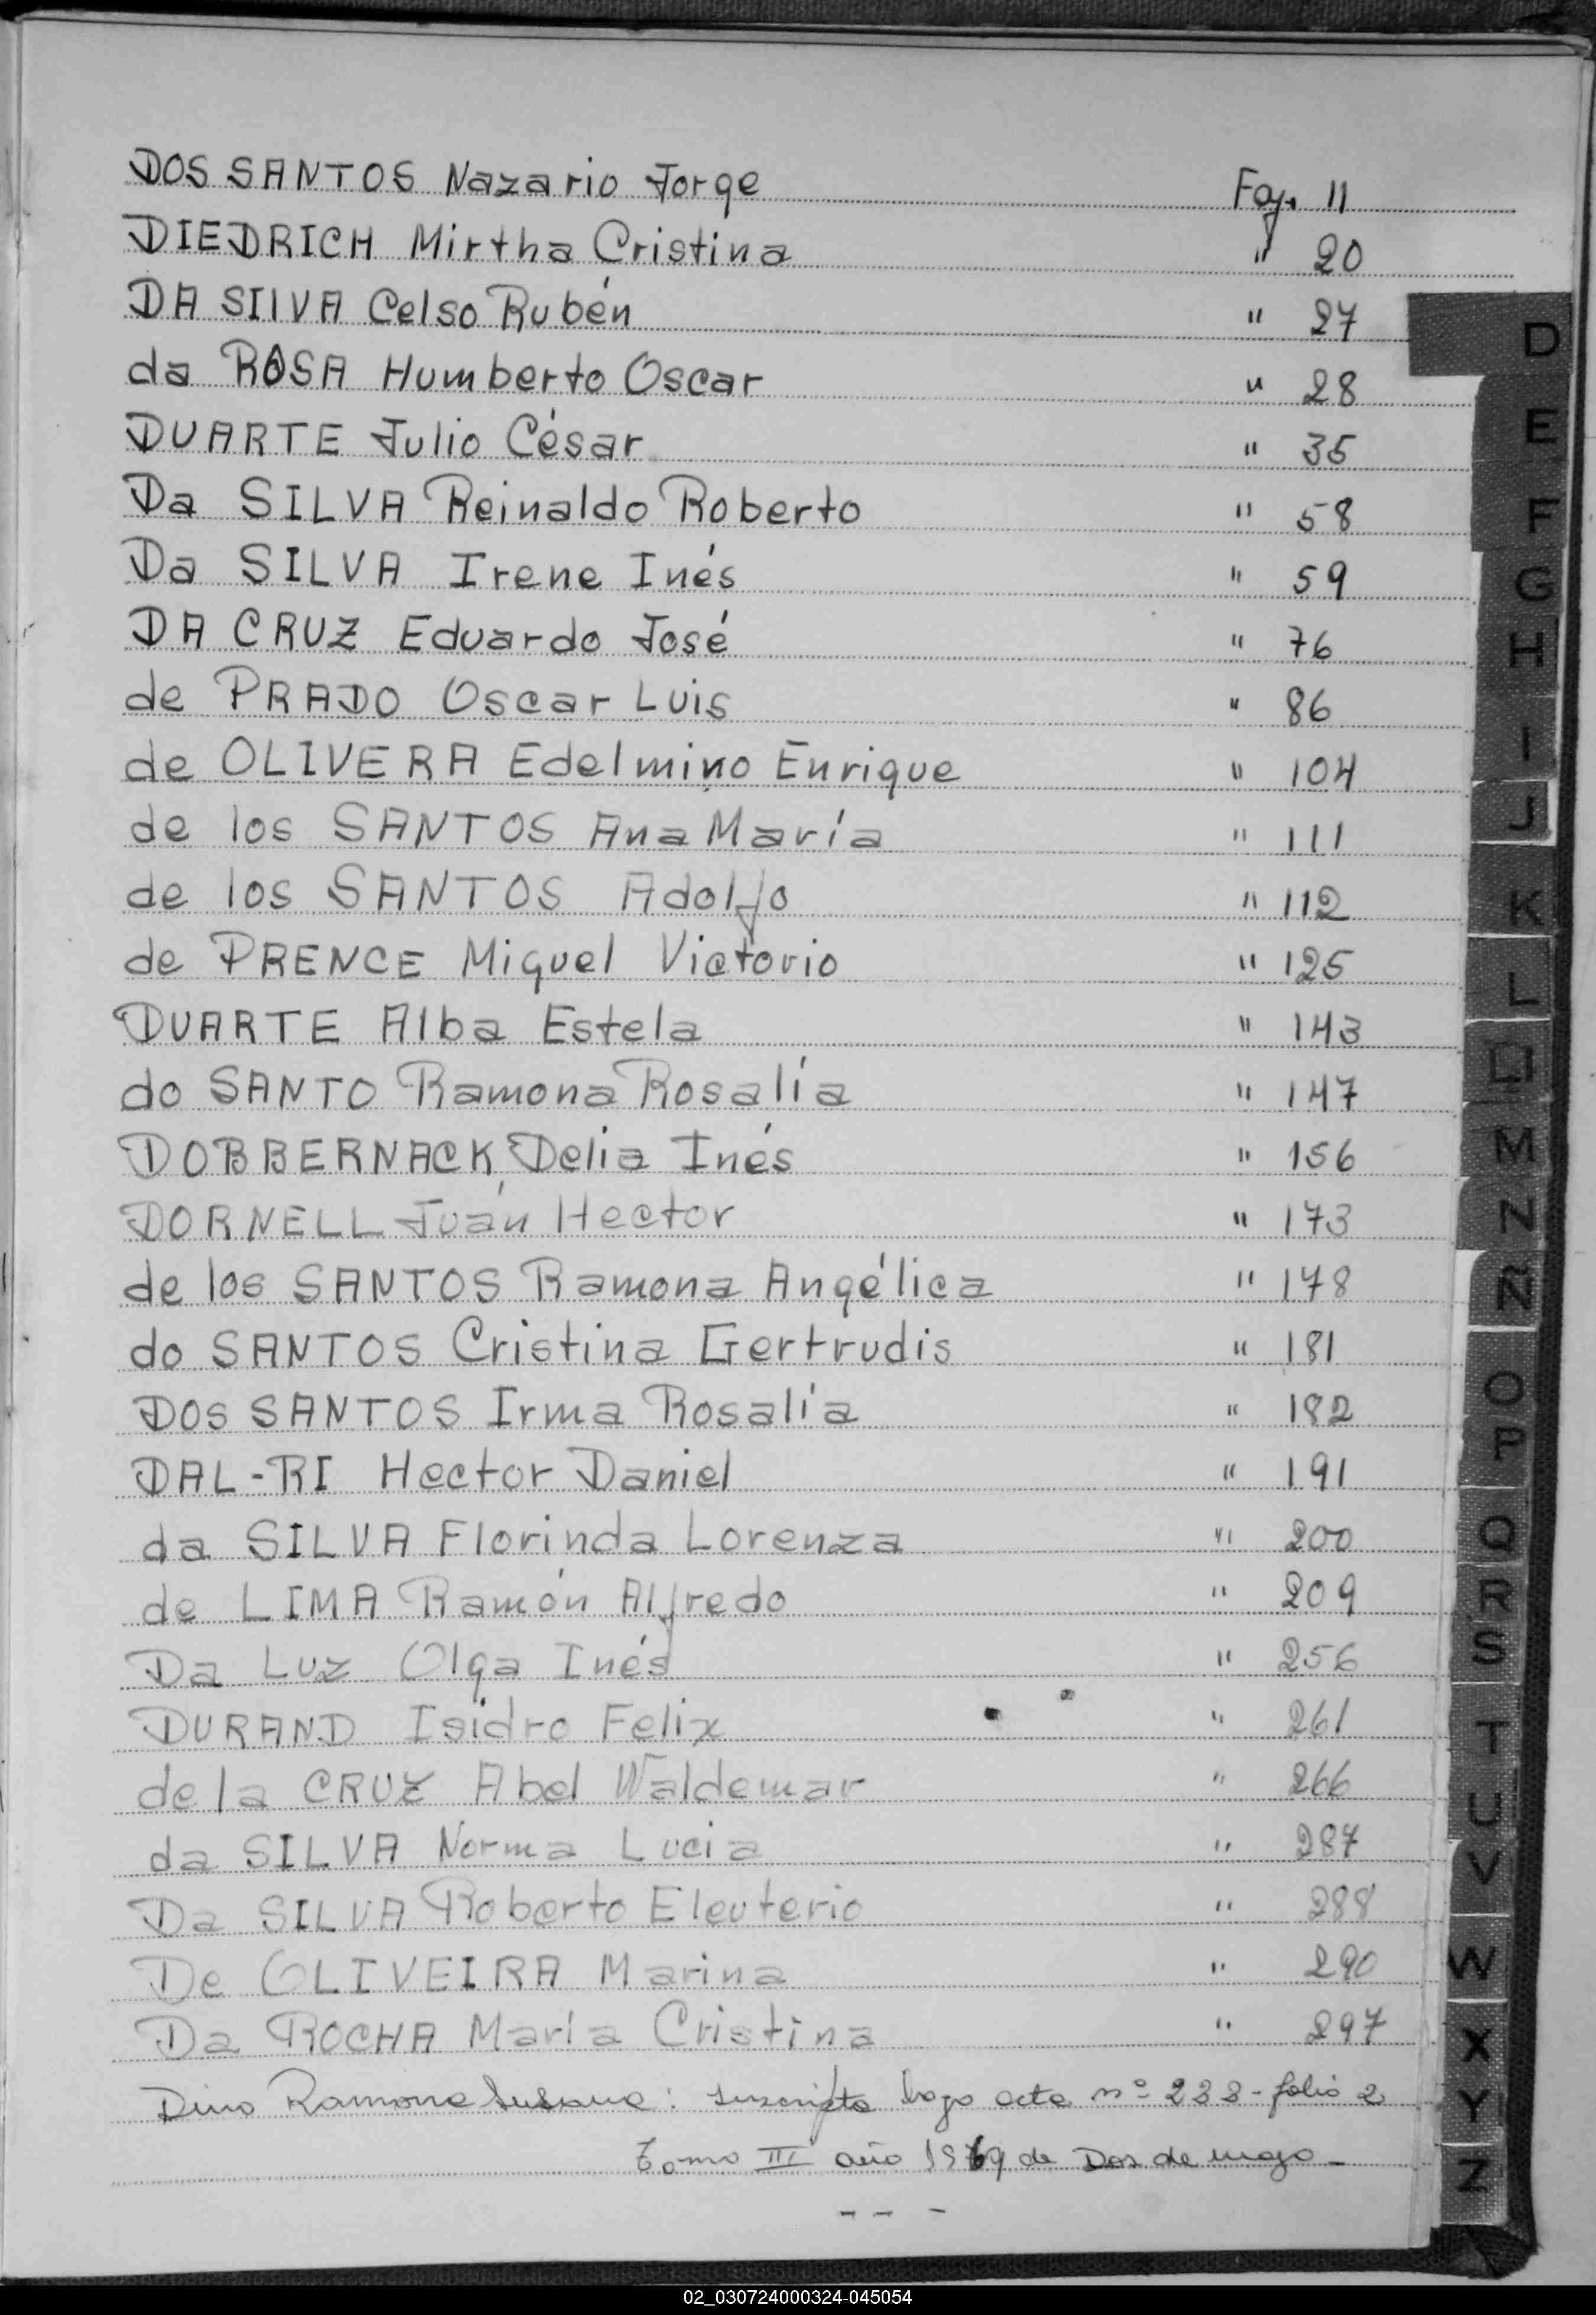 DOS SANTOS Nazario Jorge Foj. 11
DIEDRICH Mirtha Cristina " 20
DA SILVA Celso Rubén " 27
da ROSA Humberto Oscar " 28
DUARTE Julio César " 35
Da SILVA Reinaldo Roberto " 58
Da SILVA Irene Inés " 59
DA CRUZ Eduardo José " 76
de PRADO Oscar Luis " 86
de OLIVERA Edelmino Enrique " 104
de los SANTOS Ana María " 111
de los SANTOS Adolfo " 112
de PRENCE Miguel Victorio " 125
DUARTE Alba Estela " 143
do SANTO Ramona Rosalía " 147
DOBBERNACK Delia Inés " 156
DORNELL Juán Hector " 173
de los SANTOS Ramona Angélica " 178
do SANTOS Cristina Gertrudis " 181
DOS SANTOS Irma Rosalía " 182
DAL-RI Hector Daniel " 191
da SILVA Florinda Lorenza " 200
de LIMA Ramón Alfredo " 209
Da LUZ Olga Inés " 256
DURAND Isidro Felix " 261
de la CRUZ Abel Waldemar " 266
da SILVA Norma Lucia " 287
Da SILVA Roberto Eleuterio " 288
De OLIVEIRA Marina " 290
Da ROCHA María Cristina " 297
Dino Ramona Susana: Inscripta bajo acta nº 233 - folio 2
Tomo III año 1969 de Dos de mayo -
D
E
F
G
H
I
J
K
L
M
N
Ñ
O
P
Q
R
S
T
U
V
W
X
Y
Z
02_030724000324-045054